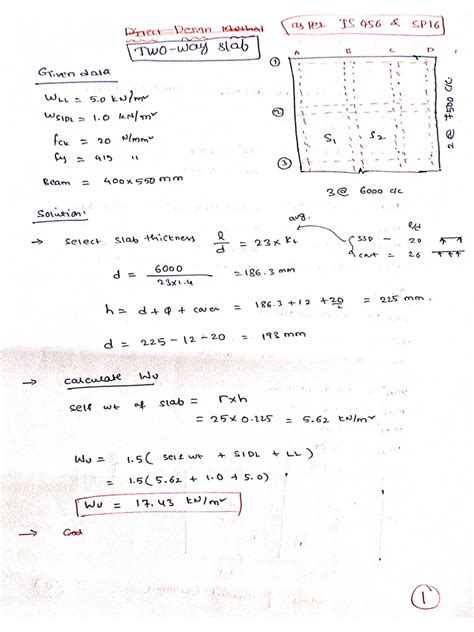 Direct Design Method
as per IS 456 & SP16
TWO-way slab
Given data
W_LL = 5.0 kN/m²
W_SIDL = 1.0 kN/m²
fck = 20 N/mm²
fy = 415 "
Beam = 400x550 mm
A B C D
1
2
3
S1 S2
2 @ 7500 c/c
3 @ 6000 c/c
Solution:
→ Select slab thickness l/d = 23 x Kt
avg.
l/d
SSD - 20
cont - 26
d = 6000/(23x1.4) = 186.3 mm
h = d + φ + cover = 186.3 + 12 + 20/2 = 225 mm.
d = 225 - 12 - 20 = 193 mm
→ calculate Wu
self wt of slab = r x h
= 25 x 0.225 = 5.62 kN/m²
Wu = 1.5 ( self wt + SIDL + LL )
= 1.5 ( 5.62 + 1.0 + 5.0 )
Wu = 17.43 kN/m²
→
1